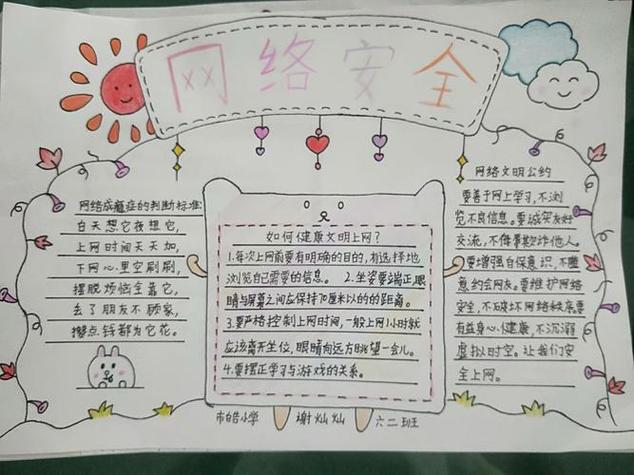 网络安全
网络成瘾症的判断标准:
白天想它夜想它,
上网时间天天加,
下网心里空刷刷,
摆脱烦恼全靠它,
去了朋友不顾家,
攒点钱都为它花。
如何健康文明上网?
1.每次上网前要有明确的目的,有选择地
浏览自己需要的信息。 2.坐姿要端正,眼
睛与屏幕之间应保持70厘米以的的距离。
3.要严格控制上网时间,一般上网1小时就
应该离开坐位,眼睛向远方眺望一会儿。
4.要摆正学习与游戏的关系。
网络文明公约
要善于网上学习,不浏
览不良信息。要诚实友好
交流,不侮辱欺诈他人。
要增强自保意识,不随
意约会网友。要维护网络
安全,不破坏网络秩序要
有益身心健康,不沉溺
虚拟时空。让我们安
全上网。
市皓小学 谢灿灿 六二班